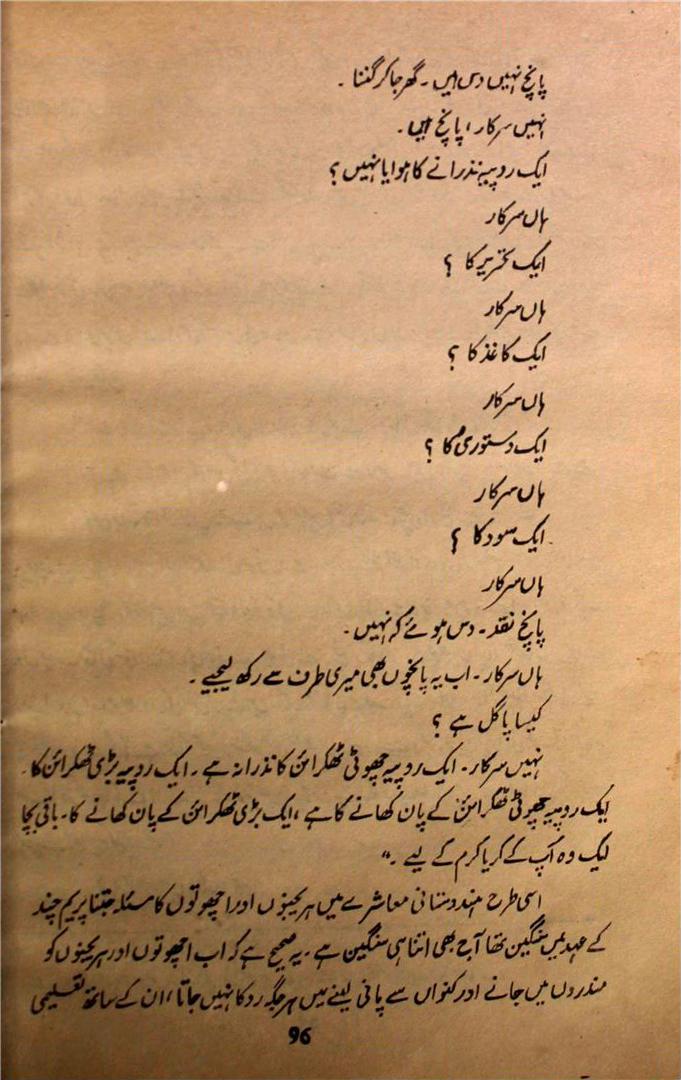 پانچ نہیں دس ہیں۔ گھر جا کر گننا۔
نہیں سرکار، پانچ ہیں۔
ایک روپیہ نذرانے کا ہوا یا نہیں؟
ہاں سرکار
ایک تحریر کا ؟
ہاں سرکار
ایک کاغذ کا ؟
ہاں سرکار
ایک دستوری کا ؟
ہاں سرکار
ایک سود کا ؟
ہاں سرکار
پانچ نقد۔ دس ہوئے کہ نہیں۔
ہاں سرکار۔ اب یہ پانچوں بھی میری طرف سے رکھ لیجیے۔
کیسا پاگل ہے ؟
نہیں سرکار۔ ایک روپیہ چھوٹی ٹھکرائن کا نذرانہ ہے۔ ایک روپیہ بڑی ٹھکرائن کا۔
ایک روپیہ چھوٹی ٹھکرائن کے پان کھانے کا ہے، ایک بڑی ٹھکرائن کے پان کھانے کا۔ باقی بچا
ایک وہ آپ کے کریا کرم کے لیے۔"
اسی طرح ہندوستانی معاشرے میں ہریجنوں اور اچھوتوں کا مسئلہ جتنا پریم چند
کے عہد میں سنگین تھا آج بھی اتنا ہی سنگین ہے۔ یہ صحیح ہے کہ اب اچھوتوں اور ہریجنوں کو
مندروں میں جانے اور کنواں سے پانی لینے میں ہر جگہ روکا نہیں جاتا، ان کے ساتھ تعلیمی
96